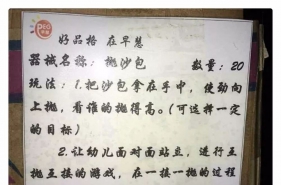 PEG
好品格 在早慧
器械名称：抛沙包 数量：20
玩法：1.把沙包拿在手中，使劲向
上抛，看谁的抛得高。（可选择一定
的目标）
2.让幼儿面对面站立，进行互
抛互接的游戏，在一接一抛的过程